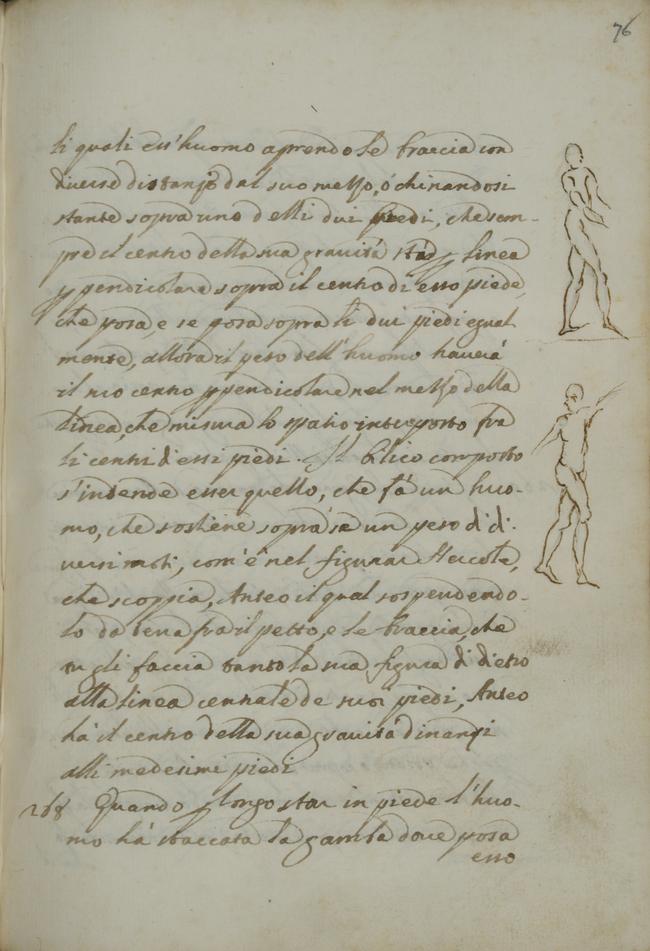 76
li quali ess'huomo aprendo le braccia con
diverse distanze dal suo mezzo, ó chinandosi
stante sopra uno delli dui piedi, che sem-
pre il centro della sua gravitá stá p linea
ppendicolare sopra il centro di esso piede,
che posa, e se posa sopra li dui piedi egual
mente, allora il peso dell'huomo haverá
il suo centro ppendicolare nel mezzo della
linea, che misura lo spatio interposto fra
li centri d'essi piedi. Il blico composto
s'intende esser quello, che fá un huo-
mo, che sostiene sopra se un peso d di-
versi moti, com'é nel figurar Hercole,
che scoppia, Anteo il qual sospendendo-
lo da terra fra il petto, e le braccia, che
tu gli faccia tanto la sua figura di dietro
alla linea centrale de suoi piedi, Anteo
há il centro della sua gravitá dinanzi
alli medesimi piedi
268 Quando p longo star in piede l'huo-
mo há staccata la gamba dove posa
esso